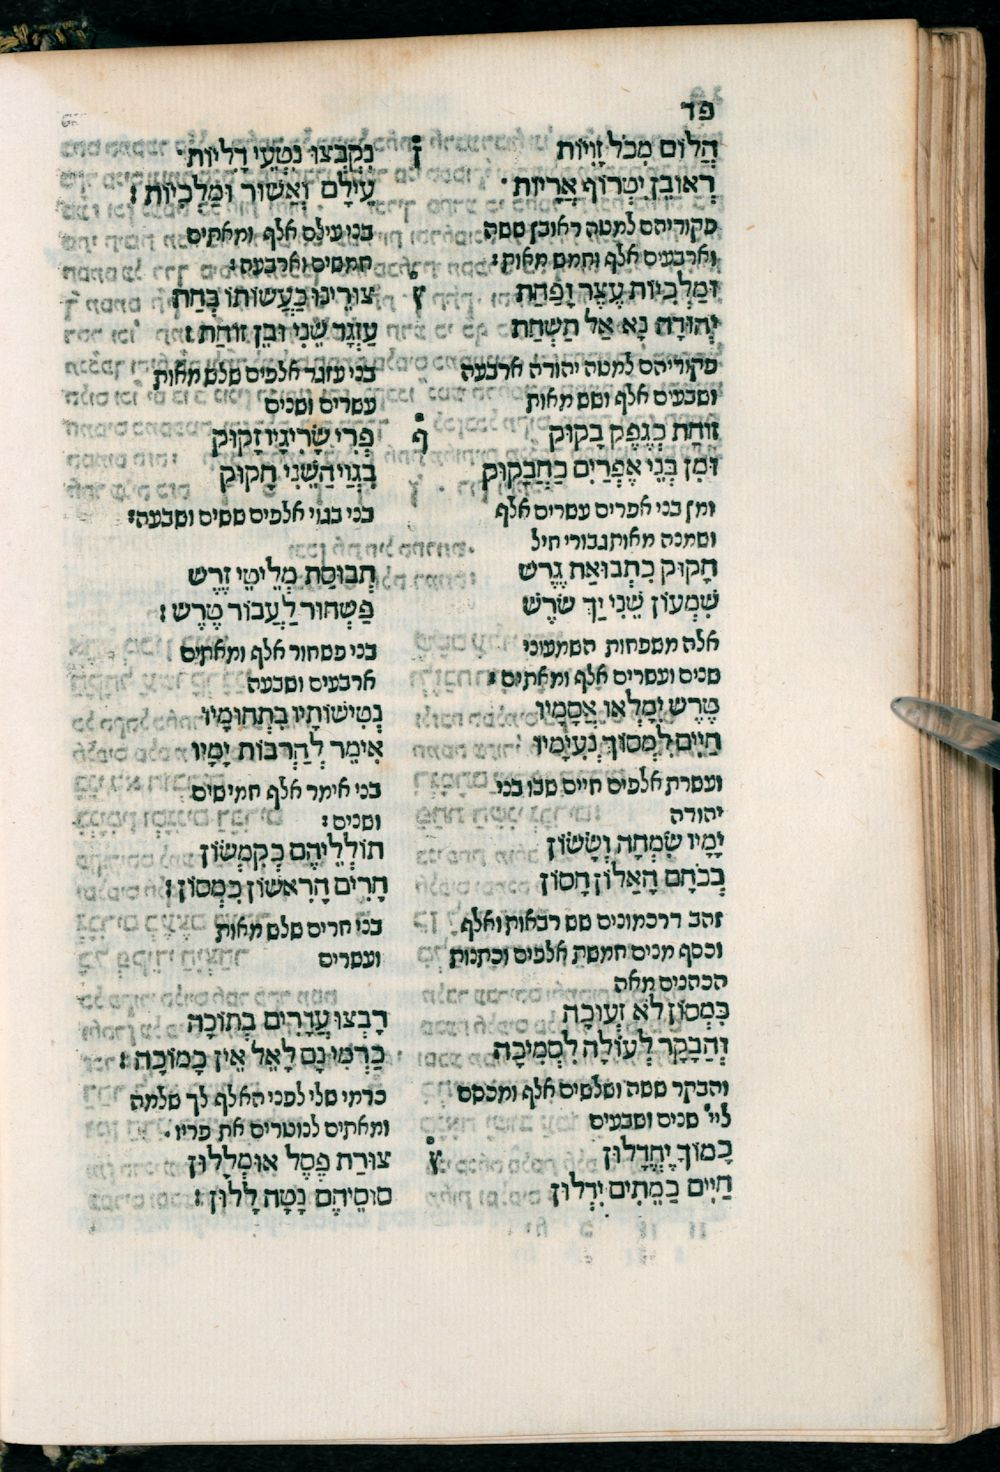 פד
הֲלוֹם מִכֹּל זָוִיּוֹת
רְאוּבֵן יִטְרוֹף אֲרָיוֹת ·
פקודיהם למטה ראובן ששה
וארבעים אלף וחמש מאות:
וּמַלְכִיּוֹת עֶצֶר וָפַחַת
יְהוּדָה נָא אַל תַּשְׁחַת
פקודיהם למטה יהודה ארבעה
ושבעים אלף ושש מאות
זוֹחַת כְּגֶפֶן בָּקוּק
וּמִן בְּנֵי אֶפְרַיִם כַּחֲבַקּוּק
ומן בני אפרים עשרים אלף
ושמנה מאות גבורי חיל
חָקוּק כִּתְבוּאַת גֶּרֶשׁ
שִׁמְעוֹן שֵׁנִי יַךְ שֹׁרֶשׁ
אלה משפחות השמעוני
שנים ועשרים אלף ומאתים:
טֶרֶשׁ יְמַלְאוּ אֲסָמָיו
חַיִּים לִמְסוֹךְ נְעִימָיו
ועשרת אלפים חיים שבו בני
יהודה
יָמָיו שִׂמְחָה וְשָׂשׂוֹן
בְּכֹחָם הָאַלּוֹן חָסוֹן
זהב דרכמונים שש רבאות ואלף
וכסף מנים חמשת אלפים וכתנות
הכהנים מאה
כִּמְסוֹן לֹא זְעוּכָה
וְהַבָּקָר לְעוֹלָה לִסְמִיכָה
והבקר ששה ושלשים אלף ומכסם
ליי' שנים ושבעים
כָּמוֹךָ יֶחְדָּלוּן
חַיִּים כַּמֵּתִים יִדְלוּן
ן נִקְבְּצוּ נִטְעֵי דָלִיּוֹת·
עֵילָם וְאַשּׁוּר וּמַלְכִיּוֹת:
בני עילם אלף ומאתים
חמשים וארבעה:
ץ צוּרֵינוּ בַּעֲשׂוֹתוֹ בְּחַת
עַזְגָּד שֵׁנִי וּבֵן זוֹחַת:
בני עזגד אלפים שלש מאות
עשרים ושנים
ף פְּרִי שָׂרִיגָיו זָקוּק
בִּגְוַי הַשֵּׁנִי חָקוּק
בני בגוי אלפים ששים ושבעה:
תְּבוּסַת מְלִיטֵי זֶרֶשׁ
פַּשְׁחוּר לַעֲבוֹר טֶרֶשׁ:
בני פשחור אלף ומאתים
ארבעים ושבעה
נְטִישׁוֹתָיו בִּתְחוּמָיו
אִימֵּר לְהַרְבּוֹת יָמָיו
בני אימר אלף חמישים
ושנים:
תּוֹלְלֵיהֶם כְּקִמְּשׂוֹן
חָרִים הָרִאשׁוֹן כִּמְסוֹן:
בני חרים שלש מאות
ועשרים
רָבְצוּ עֲדָרִים בְּתוֹכָהּ
כַּרְמִי גַם לָאֵל אֵין כָּמוֹכָה:
כרמי שלי לפני האלף לך שלמה
ומאתים לנוטרים את פריו·
ץ צוּרַת פֶּסֶל אוּמְלָלוּן
סוּסֵיהֶם נָטָה לָלוּן: